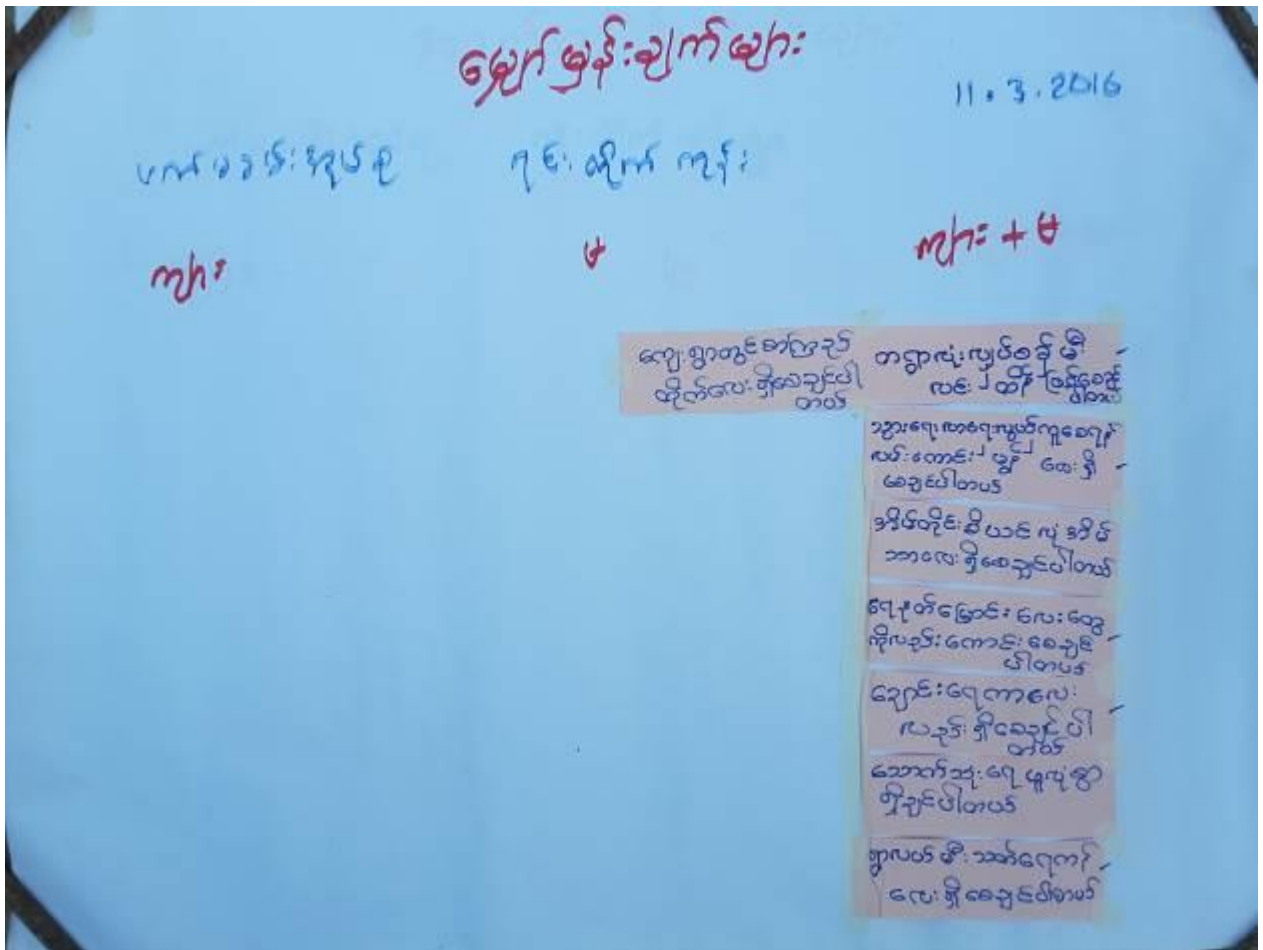 မျှော်မှန်းချက်များ
11.3.2016
ကျား
မ
ကျား + မ
ကျေးရွာတွင်စာကြည့်
တိုက်လေးရှိစေချင်ပါ
တယ်
တရွာလုံးလျှပ်စစ်မီး
လင်း ထိန် ဖြစ်စေချင်
ပါတယ်
သွားရေးလာရေးလွယ်ကူစေရန်
လမ်းကောင်း လေးရှိ
စေချင်ပါတယ်
အိမ်တိုင်းစီယင်လုံအိမ်
သာလေးရှိစေချင်ပါတယ်
ရေနုတ်မြောင်းလေးတွေ
ကိုလည်းကောင်းစေချင်
ပါတယ်
ချောင်းရေကာလေး
လည်းရှိစေချင်ပါ
တယ်
သောက်သုံးရေဖူလုံစွာ
ရှိချင်ပါတယ်
ရွာလယ်မီးသတ်ရေကန်
လေးရှိစေချင်ပါတယ်